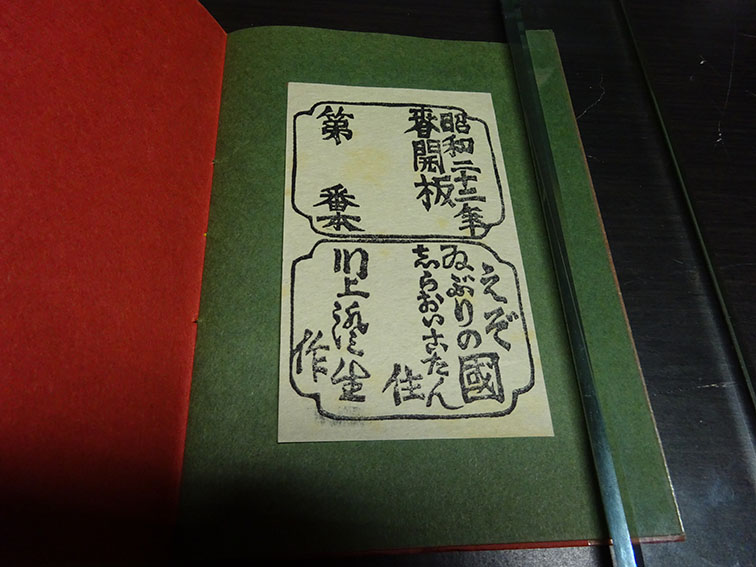 昭和二十二年
春開板
第 番本
えぞ
ゐぶりの國
志らおいこたん
住
川上澄生
作